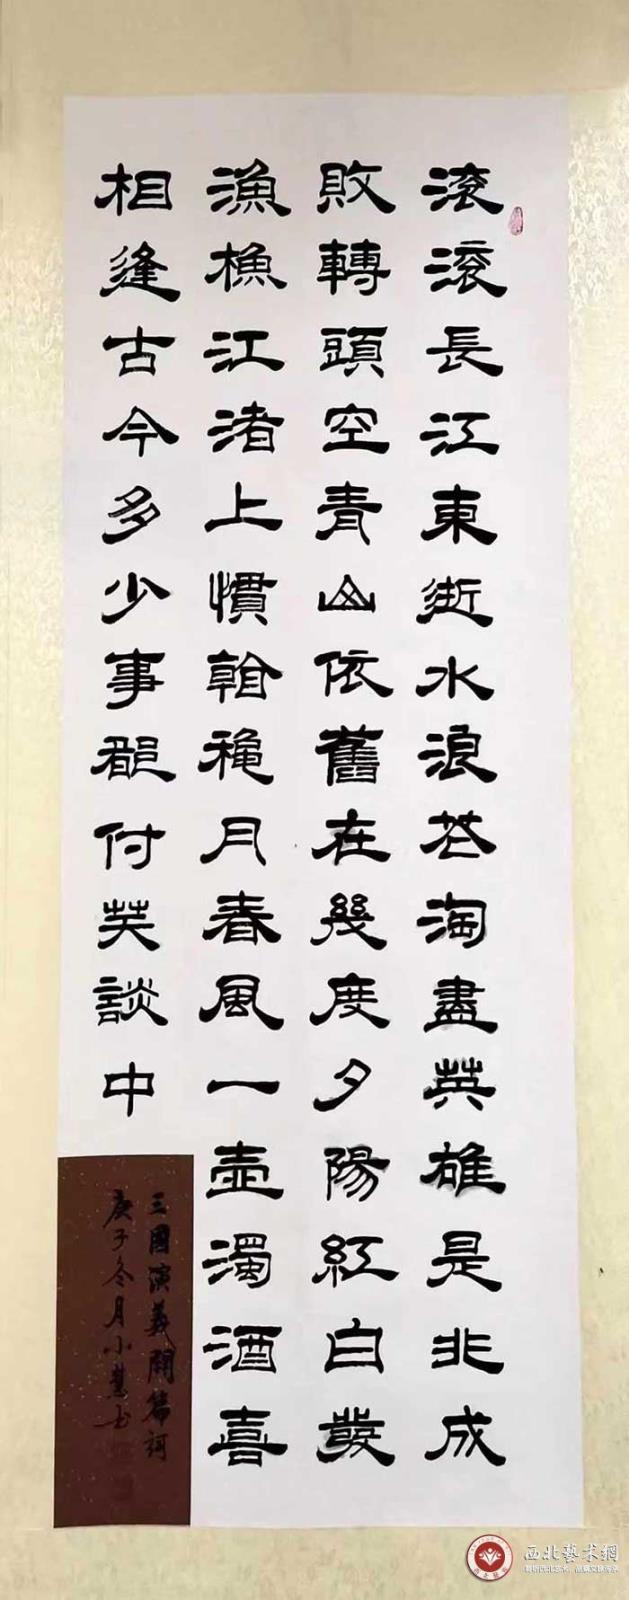 滚滚長江東逝水浪花淘盡英雄是非成
敗轉頭空青山依舊在幾度夕陽紅白發
漁樵江渚上慣看秋月春風一壺濁酒喜
相逢古今多少事都付笑談中
三國演義開篇詞
庚子冬月小慧书
西北藝术網